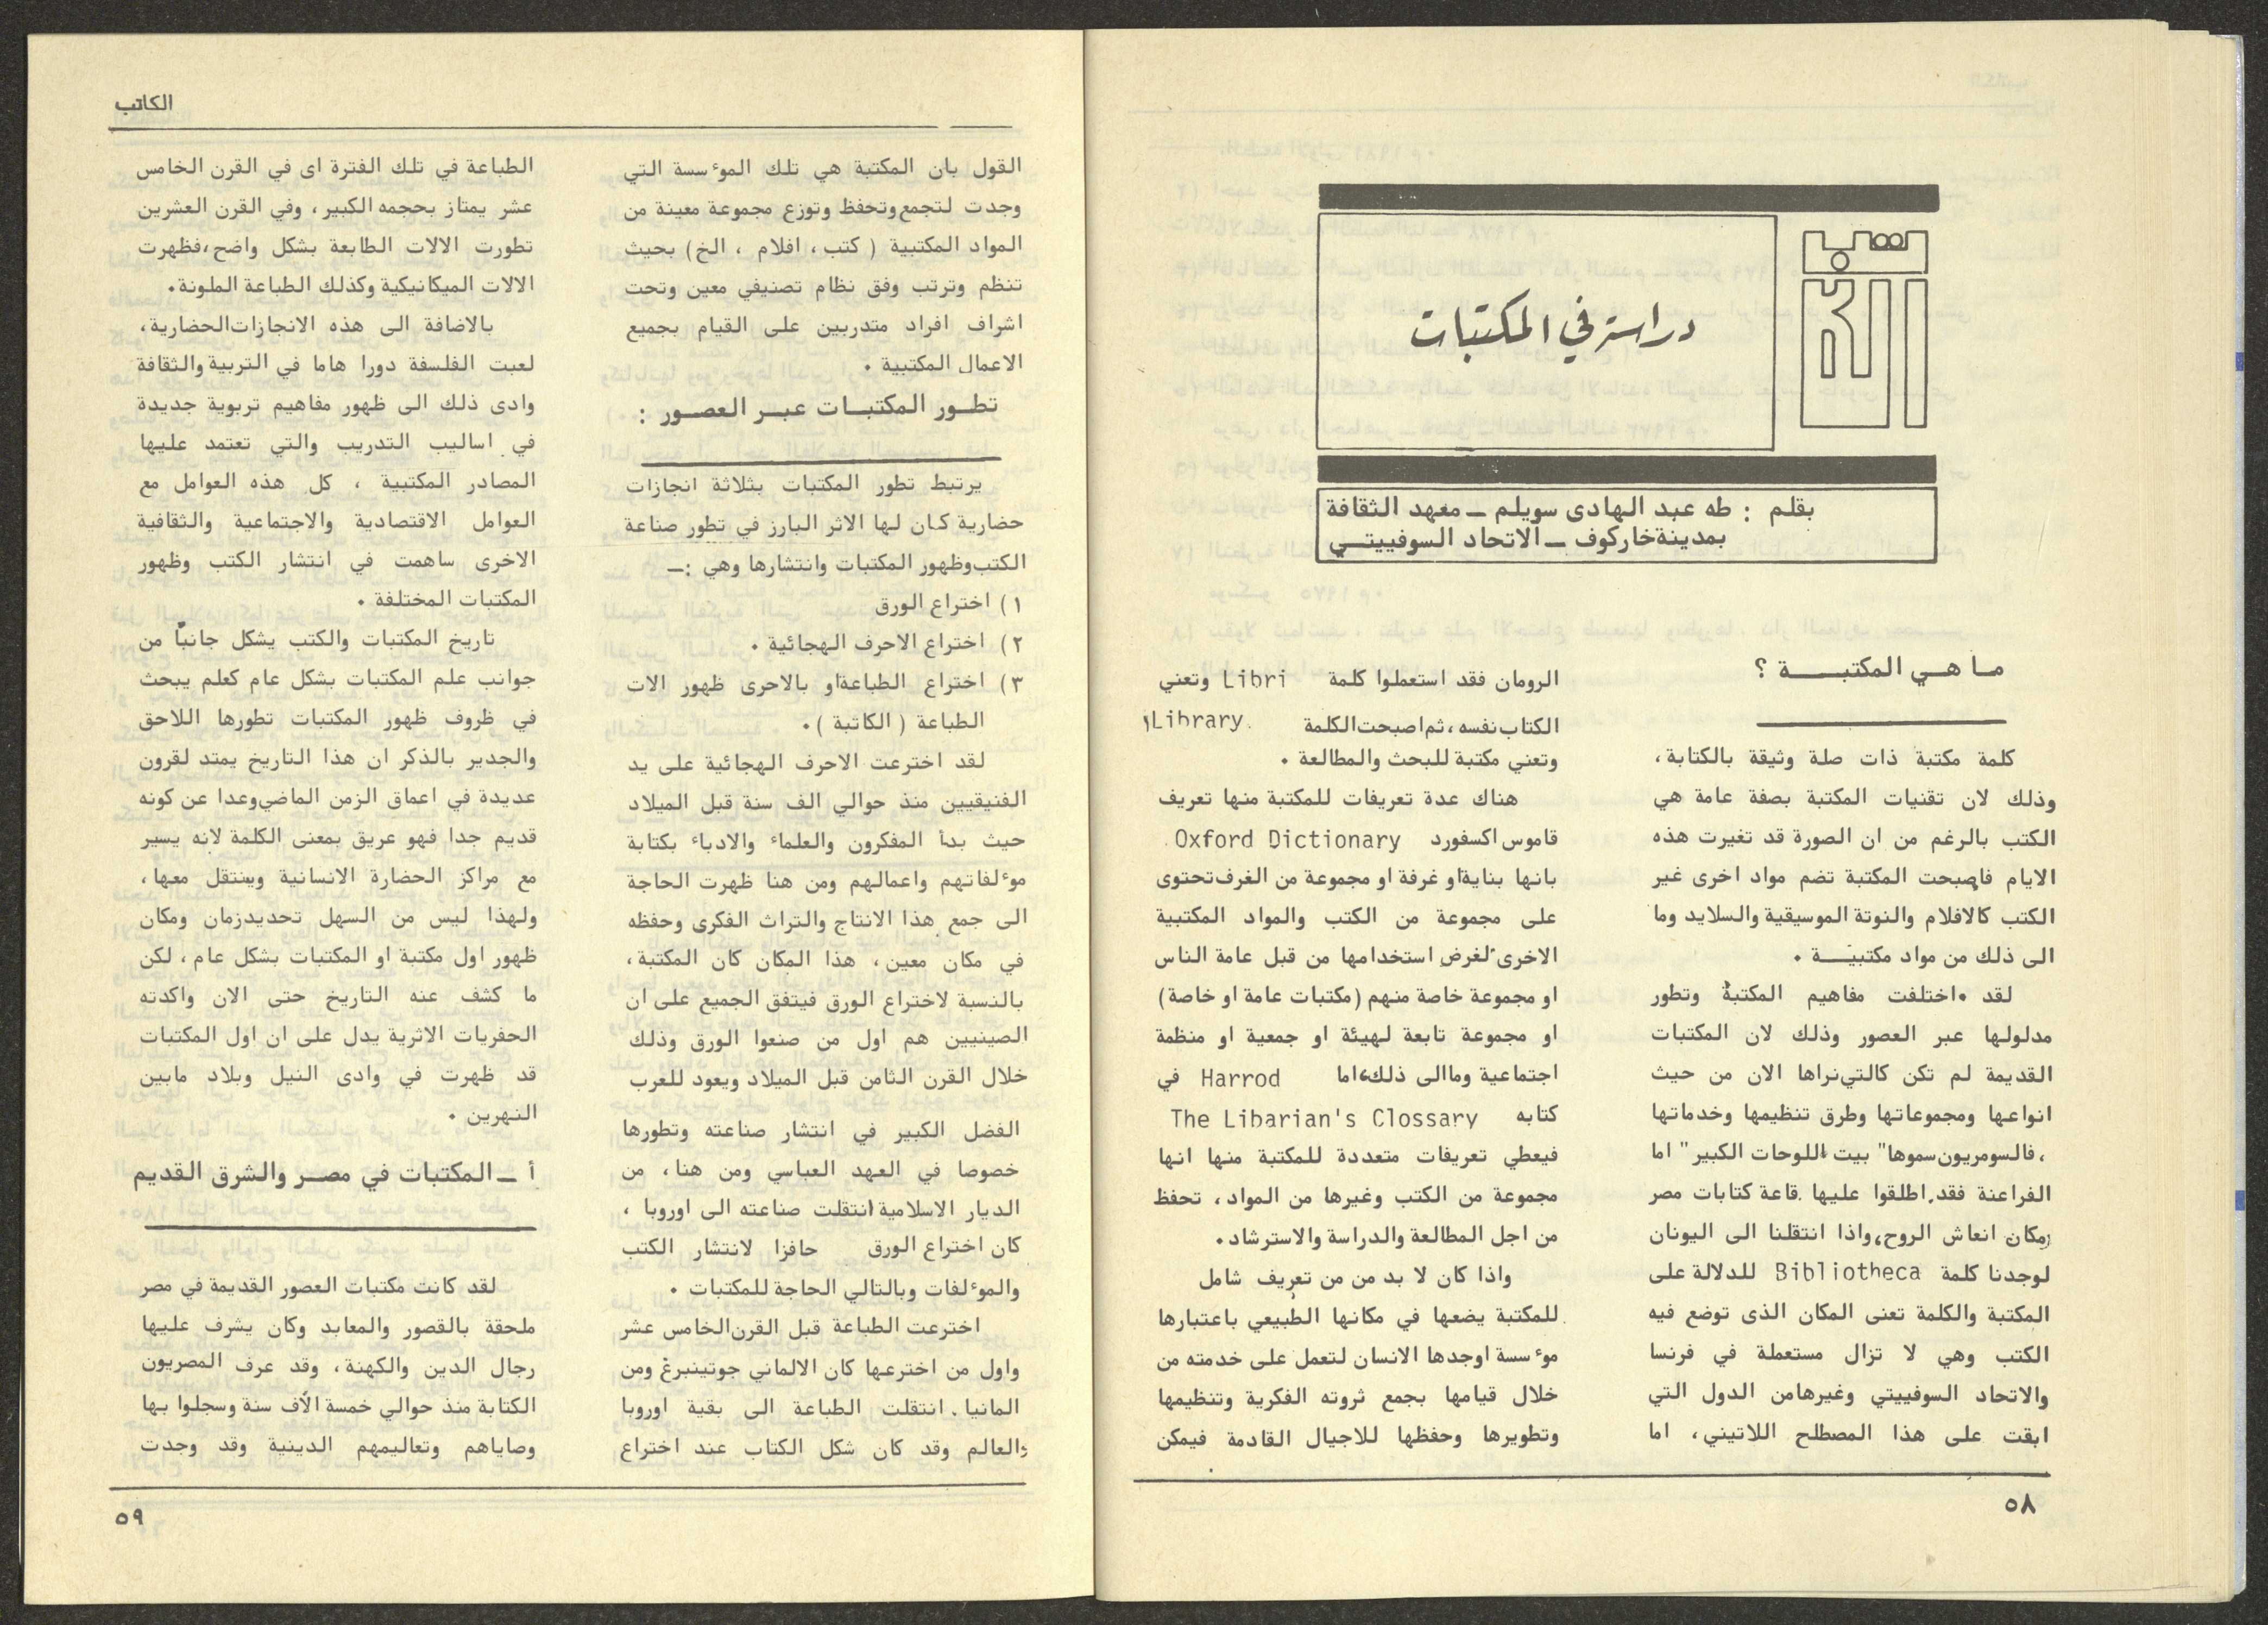 دراسة في المكتبات
بقلم : طه عبد الهادى سويلم ــ معهد الثقافة
بمدينة خاركوف ــ الاتحاد السوفييتـــي
مـا هــي المكتبــــــة ؟
كلمة مكتبة ذات صلة وثيقة بالكتابة،
وذلك لان تقنيات المكتبة بصفة عامة هي
الكتب بالرغم من ان الصورة قد تغيرت هذه
الايام فاصبحت المكتبة تضم مواد اخرى غير
الكتب كالافلام والنوتة الموسيقية والسلايد وما
الى ذلك من مواد مكتبيـــة .
لقد اختلفت مفاهيم المكتبة وتطور
مدلولها عبر العصور وذلك لان المكتبات
القديمة لم تكن كالتي نراها الان من حيث
انواعها ومجموعاتها وطرق تنظيمها وخدماتها
، فالسومريون سموها" بيت اللوحات الكبير" اما
الفراعنة فقد اطلقوا عليها قاعة كتابات مصر
ومكان انعاش الروح، واذا انتقلنا الى اليونان
لوجدنا كلمة Bibliotheca للدلالة على
المكتبة والكلمة تعنى المكان الذى توضع فيه
الكتب وهي لا تزال مستعملة في فرنسا
والاتحاد السوفييتي وغيرهامن الدول التي
ابقت على هذا المصطلح اللاتيني، اما
الرومان فقد استعملوا كلمة Libri وتعني
الكتاب نفسه ، ثم اصبحت الكلمة Library
وتعني مكتبة للبحث والمطالعة .
هناك عدة تعريفات للمكتبة منها تعريف
قاموس اكسفورد Oxford Dictionary
بانها بناية او غرفة او مجموعة من الغرف تحتوى
على مجموعة من الكتب والمواد المكتبية
الاخرى لغرض استخدامها من قبل عامة الناس
او مجموعة خاصة منهم (مكتبات عامة او خاصة)
او مجموعة تابعة لهيئة او جمعية او منظمة
اجتماعية وماالى ذلك، اما Harrod في
كتابه The Libarian's Clossary
فيعطي تعريفات متعددة للمكتبة منها انها
مجموعة من الكتب وغيرها من المواد، تحفظ
من اجل المطالعة والدراسة والاسترشاد.
واذا كان لا بد من من تعريف شامل
للمكتبة يضعها في مكانها الطبيعي باعتبارها
موءسسة اوجدها الانسان لتعمل على خدمته من
خلال قيامها بجمع ثروته الفكرية وتنظيمها
وتطويرها وحفظها للاجيال القادمة فيمكن
٥٨
الكاتب
القول بان المكتبة هي تلك الموءسسة التي
وجدت لتجمع وتحفظ وتوزع مجموعة معينة من
المواد المكتبية ( كتب، افلام ، الخ) بحيث
تنظم وترتب وفق نظام تصنيفي معين وتحت
اشراف افراد متدربين على القيام بجميع
الاعمال المكتبية .
تطــور المكتبــات عبــر العصــور :
يرتبط تطور المكتبات بثلاثة انجازات
حضارية كان لها الاثر البارز في تطور صناعة
الكتب وظهور المكتبات وانتشارها وهي :ــ
١) اختراع الورق
٢) اختراع الاحرف الهجائية .
٣) اختراع الطباعة او بالاحرى ظهور الات
الطباعة ( الكاتبة ).
لقد اخترعت الاحرف الهجائية على يد
الفنيقيين منذ حوالي الف سنة قبل الميلاد
حيث بدأ المفكرون والعلماء والادباء بكتابة
موءلفاتهم واعمالهم ومن هنا ظهرت الحاجة
الى جمع هذا الانتاج والتراث الفكرى وحفظه
في مكان معين، هذا المكان كان المكتبة،
بالنسبة لاختراع الورق فيتفق الجميع على ان
الصينيين هم اول من صنعوا الورق وذلك
خلال القرن الثامن قبل الميلاد ويعود للعرب
الفضل الكبير في انتشار صناعته وتطورها
خصوصا في العهد العباسي ومن هنا، من
الديار الاسلامية انتقلت صناعته الى اوروبا ،
كان اختراع الورق حافزا لانتشار الكتب
والموءلفات وبالتالي الحاجة للمكتبات .
اخترعت الطباعة قبل القرن الخامس عشر
واول من اخترعها كان الالماني جوتينبرغ ومن
المانيا انتقلت الطباعة الى بقية اوروبا
والعالم وقد كان شكل الكتاب عند اختراع
الطباعة في تلك الفترة اى في القرن الخامس
عشر يمتاز بحجمه الكبير، وفي القرن العشرين
تطورت الالات الطابعة بشكل واضح، فظهرت
الالات الميكانيكية وكذلك الطباعة الملونة.
بالاضافة الى هذه الانجازات الحضارية،
لعبت الفلسفة دورا هاما في التربية والثقافة
وادى ذلك الى ظهور مفاهيم تربوية جديدة
في اساليب التدريب والتي تعتمد عليها
المصادر المكتبية ، كل هذه العوامل مع
العوامل الاقتصادية والاجتماعية والثقافية
الاخرى ساهمت في انتشار الكتب وظهور
المكتبات المختلفة .
تاريخ المكتبات والكتب يشكل جانباً من
جوانب علم المكتبات بشكل عام كعلم يبحث
في ظروف ظهور المكتبات تطورها اللاحق
والجدير بالذكر ان هذا التاريخ يمتد لقرون
عديدة في اعماق الزمن الماضي وعدا عن كونه
قديم جدا فهو عريق بمعنى الكلمة لانه يسير
مع مراكز الحضارة الانسانية وينتقل معها،
ولهذا ليس من السهل تحديد زمان ومكان
ظهور اول مكتبة او المكتبات بشكل عام ، لكن
ما كشف عنه التاريخ حتى الان واكدته
الحفريات الاثرية يدل على ان اول المكتبات
قد ظهرت في وادى النيل وبلاد مابين
النهرين .
أ ــ المكتبات في مصــر والشرق القديم
لقد كانت مكتبات العصور القديمة في مصر
ملحقة بالقصور والمعابد وكان يشرف عليها
رجال الدين والكهنة، وقد عرف المصريون
الكتابة منذ حوالي خمسة الآف سنة وسجلوا بها
وصاياهم وتعاليمهم الدينية وقد وجدت
٥٩